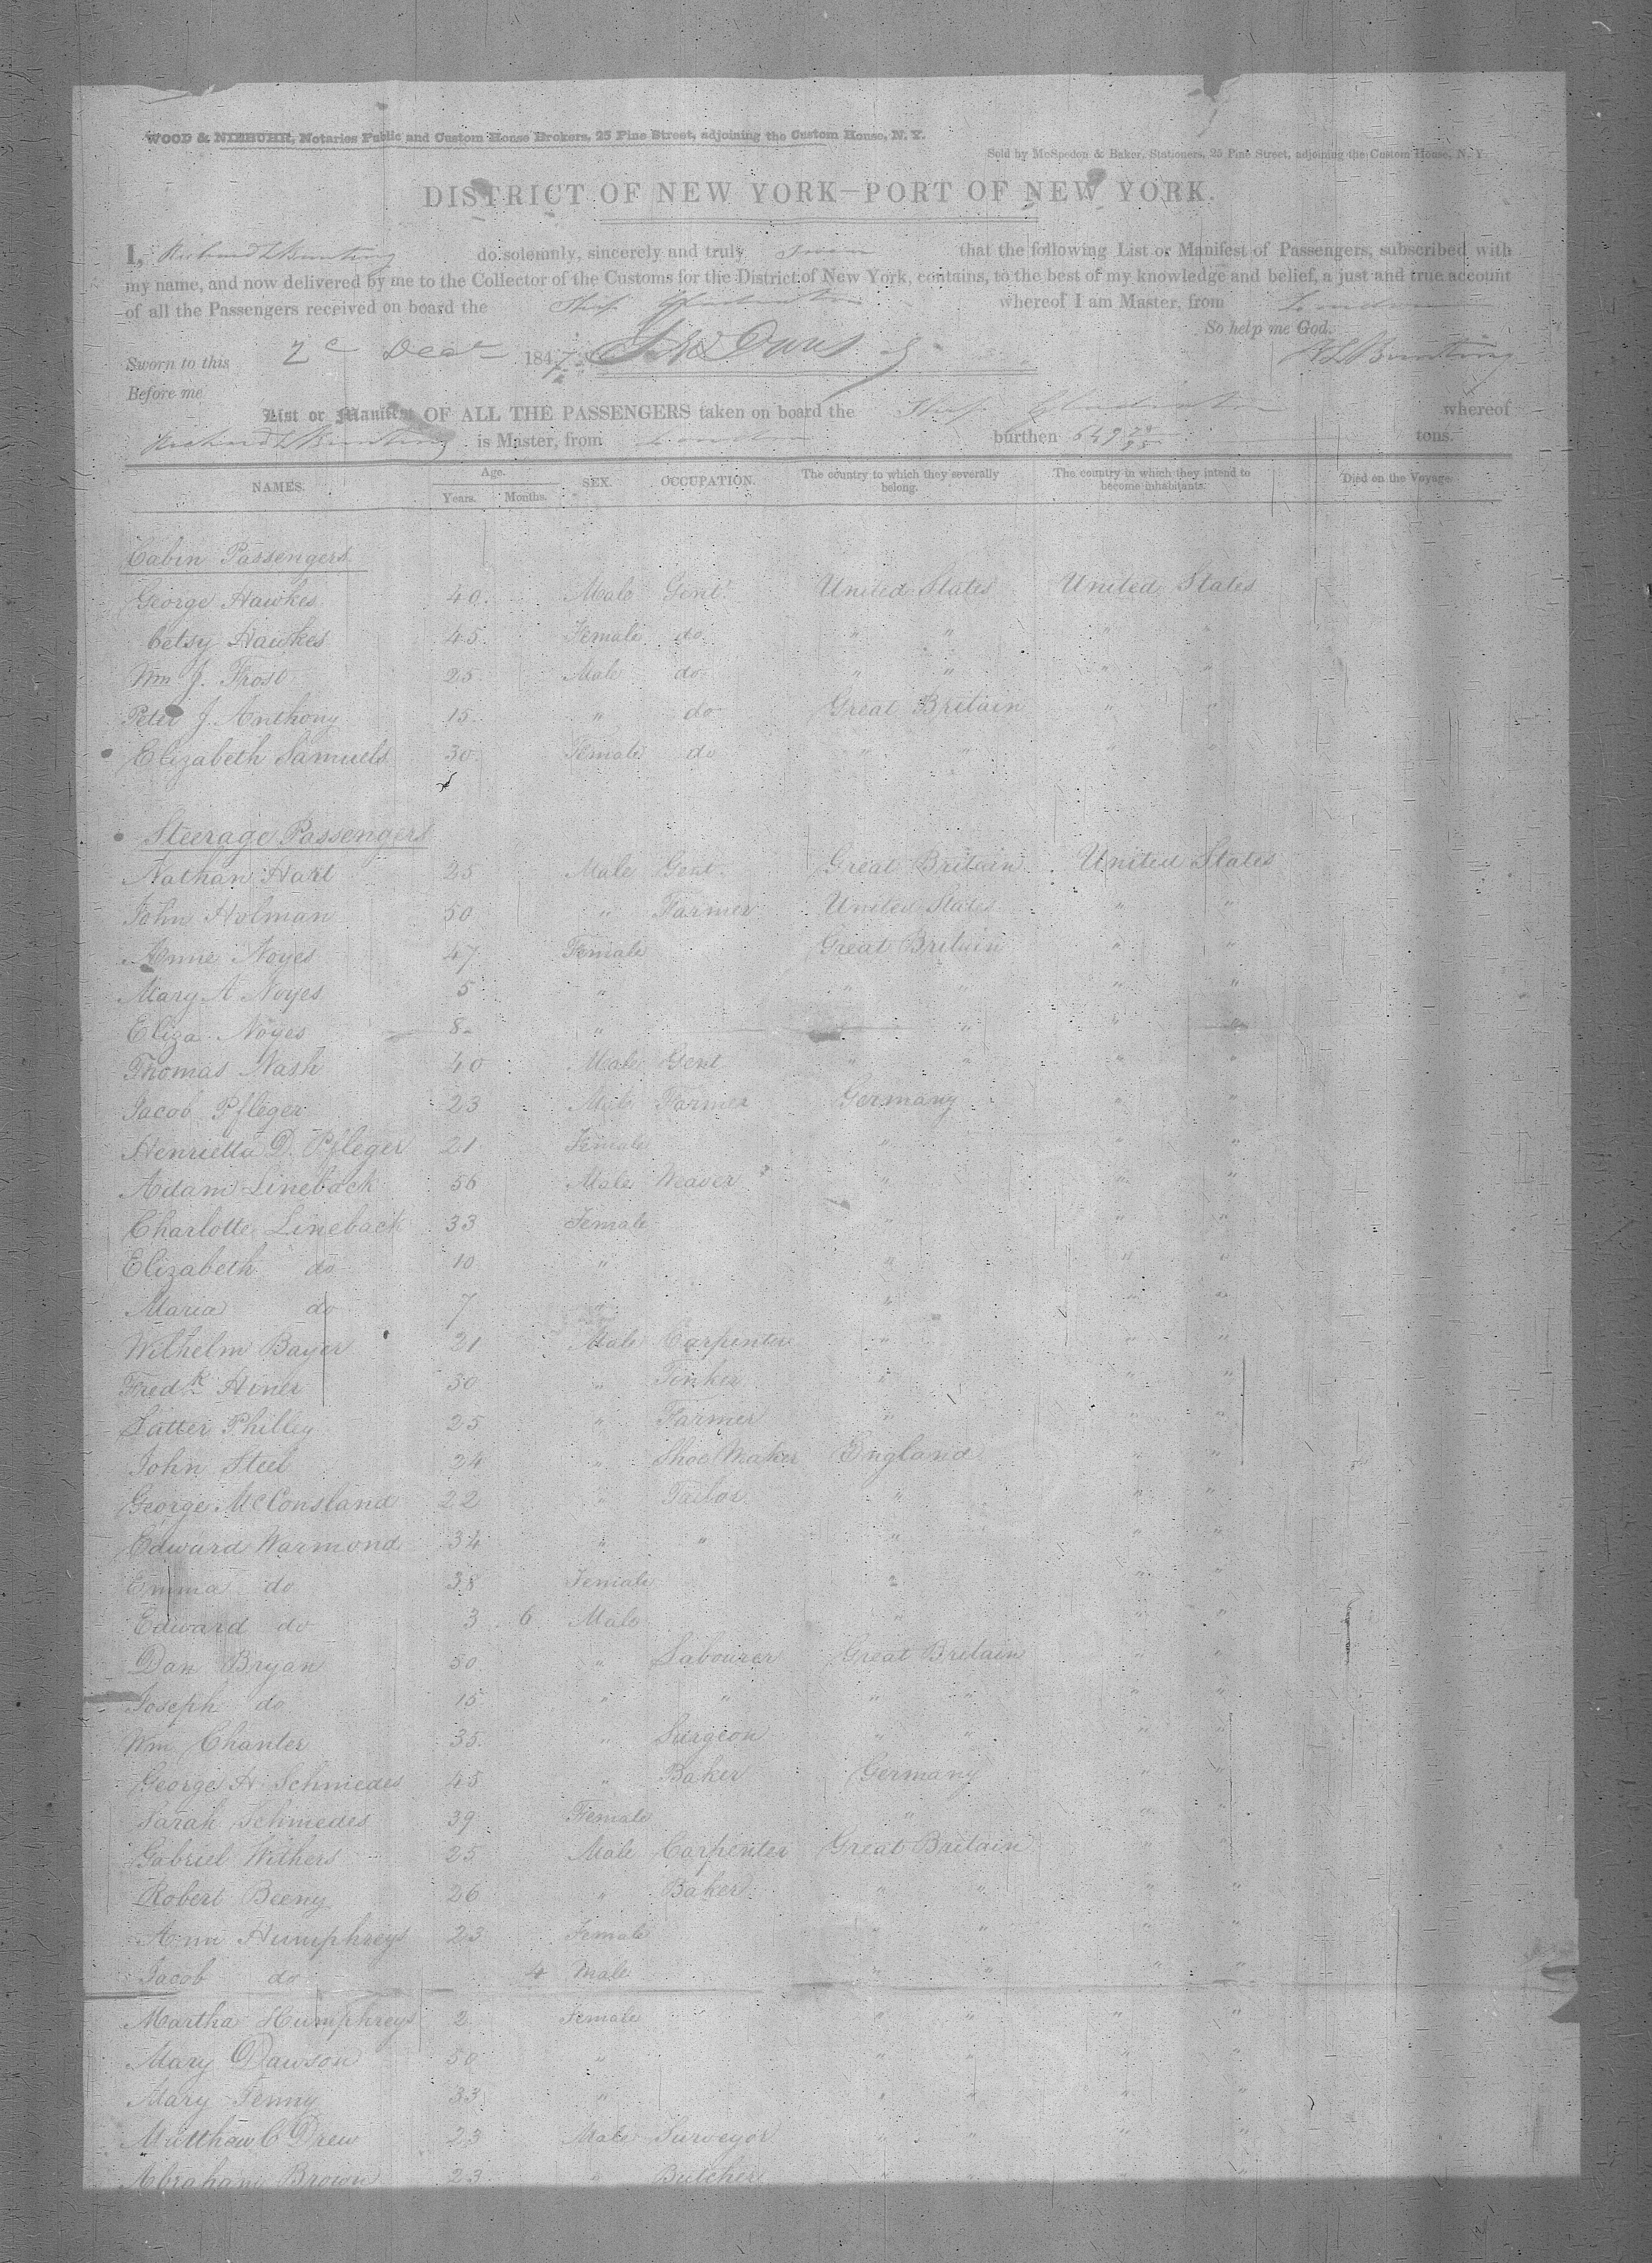 WOOD & NIEBUHR, Notaries Public and Custom House Brokers, 25 Pine Street, adjoining the Custom House, N. Y.
Sold by McSpedon & Baker, Stationers, 25 Pine Street, adjoining the Custom House, N. Y.
DISTRICT OF NEW YORK—PORT OF NEW YORK.
I, Richard L Bunting do solemnly, sincerely and truly Swear that the following List or Manifest of Passengers, subscribed with
my name, and now delivered by me to the Collector of the Customs for the District of New York, contains, to the best of my knowledge and belief, a just and true account
of all the Passengers received on board the Ship Gladiator whereof I am Master, from London
So help me God.
Sworn to this 2d Decr 1847 R L Bunting
Before me
List or Manifest OF ALL THE PASSENGERS taken on board the Ship Gladiator whereof
Richard L Bunting is Master, from London burthen 649 tons.
NAMES. Age. Years. Months. SEX. OCCUPATION. The country to which they severally belong. The country in which they intend to become inhabitants. Died on the Voyage.
Cabin Passengers
George Hawkes 40 Male Gent. United States United States
Betsy Hawkes 45 Female do " " " "
Wm J. Frost 25 Male do " " " "
Peter J. Anthony 15 " do Great Britain " "
Elizabeth Samuels 30 Female do " " " "
Steerage Passengers
Nathan Hart 25 Male Gent. Great Britain United States
John Holman 50 " Farmer United States " "
Anne Noyes 47 Female Great Britain " "
Mary A Noyes 5 " " " " "
Eliza Noyes 8 " " " "
Thomas Nash 40 Male Gent " " " "
Jacob Pfleger 23 Male Farmer Germany " "
Henrietta D. Pfleger 21 Female " " "
Adam Lineback 56 Male Weaver " " "
Charlotte Lineback 33 Female " " "
Elizabeth do 10 " " " "
Maria do 7 " " " "
Wilhelm Bayer 21 Male Carpenter " " "
Fredk Hiner 50 " Tinker " " "
Latter Philley 25 " Farmer " " "
John Steel 24 " Shoe Maker England " "
George McConsland 22 " Tailor " " "
Edward Warmond 34 " " " " "
Emma do 38 Female " " "
Edward do 3 6 Male " " "
Dan Bryan 50 " Labourer Great Britain " "
Joseph do 15 " " " " " "
Wm Chanter 35 " Surgeon " " " "
George H Schmedes 45 " Baker Germany " "
Sarah Schmedes 39 Female " " "
Gabriel Withers 25 Male Carpenter Great Britain " "
Robert Beeny 26 " Baker " " " "
Ann Humphreys 23 Female " " " "
Jacob do 4 Male " " " "
Martha Humphreys 2 Female " " " "
Mary Dawson 50 " " " " "
Mary Fenny 33 " " " " "
Matthew C Drew 23 Male Surveyor " " " "
Abraham Brown 23 " Butcher " " " "